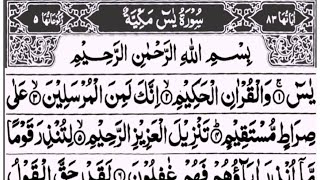 اٰیَاتُهَا ٨٣ سُوْرَةُ یٰسٓ مَكِّیَّةٌ رُكُوْعَاتُهَا ٥
بِسْمِ اللّٰهِ الرَّحْمٰنِ الرَّحِیْمِ
یٰسٓ ۝١ وَالْقُرْاٰنِ الْحَكِیْمِ ۝٢ اِنَّكَ لَمِنَ الْمُرْسَلِیْنَ ۝٣ عَلٰی
صِرَاطٍ مُّسْتَقِیْمٍ ۝٤ تَنْزِیْلَ الْعَزِیْزِ الرَّحِیْمِ ۝٥ لِتُنْذِرَ قَوْمًا
مَّاۤ اُنْذِرَ اٰبَآؤُهُمْ فَهُمْ غٰفِلُوْنَ ۝٦ لَقَدْ حَقَّ الْقَوْلُ